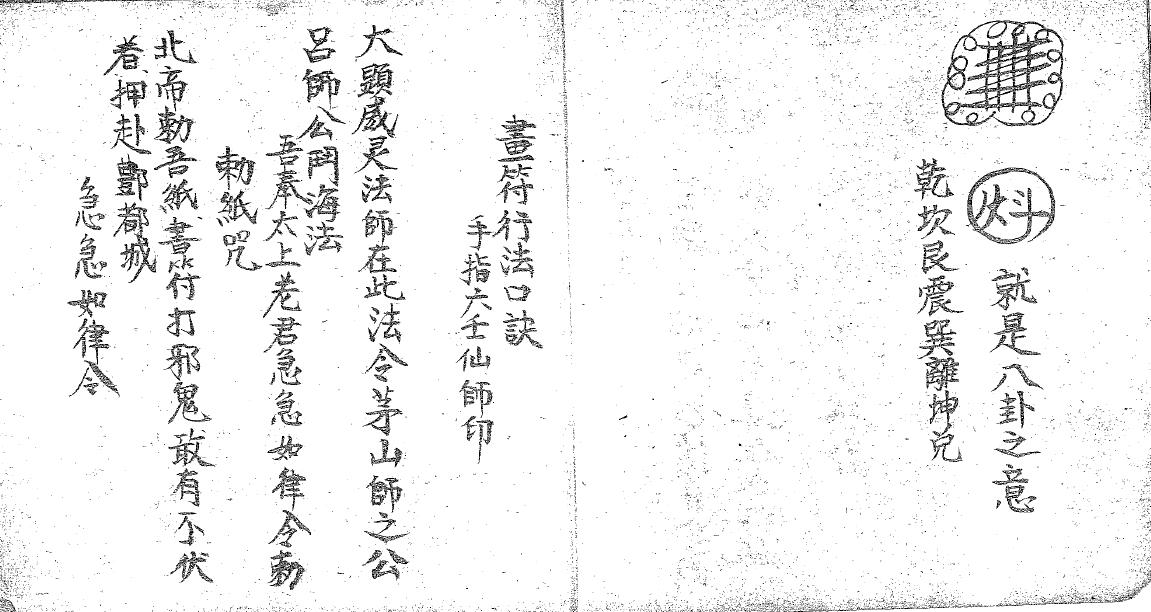 㪵
就是八卦之意
乾坎艮震巽離坤兑
畫符行法口訣
手指六壬仙師印
大顕威灵法師在此法令茅山師之公
呂師公鬥海法
吾奉太上老君急急如律令勅
勅紙咒
北帝勅吾紙書符打邪鬼敢有不伏
者押赴酆都城
急急如律令